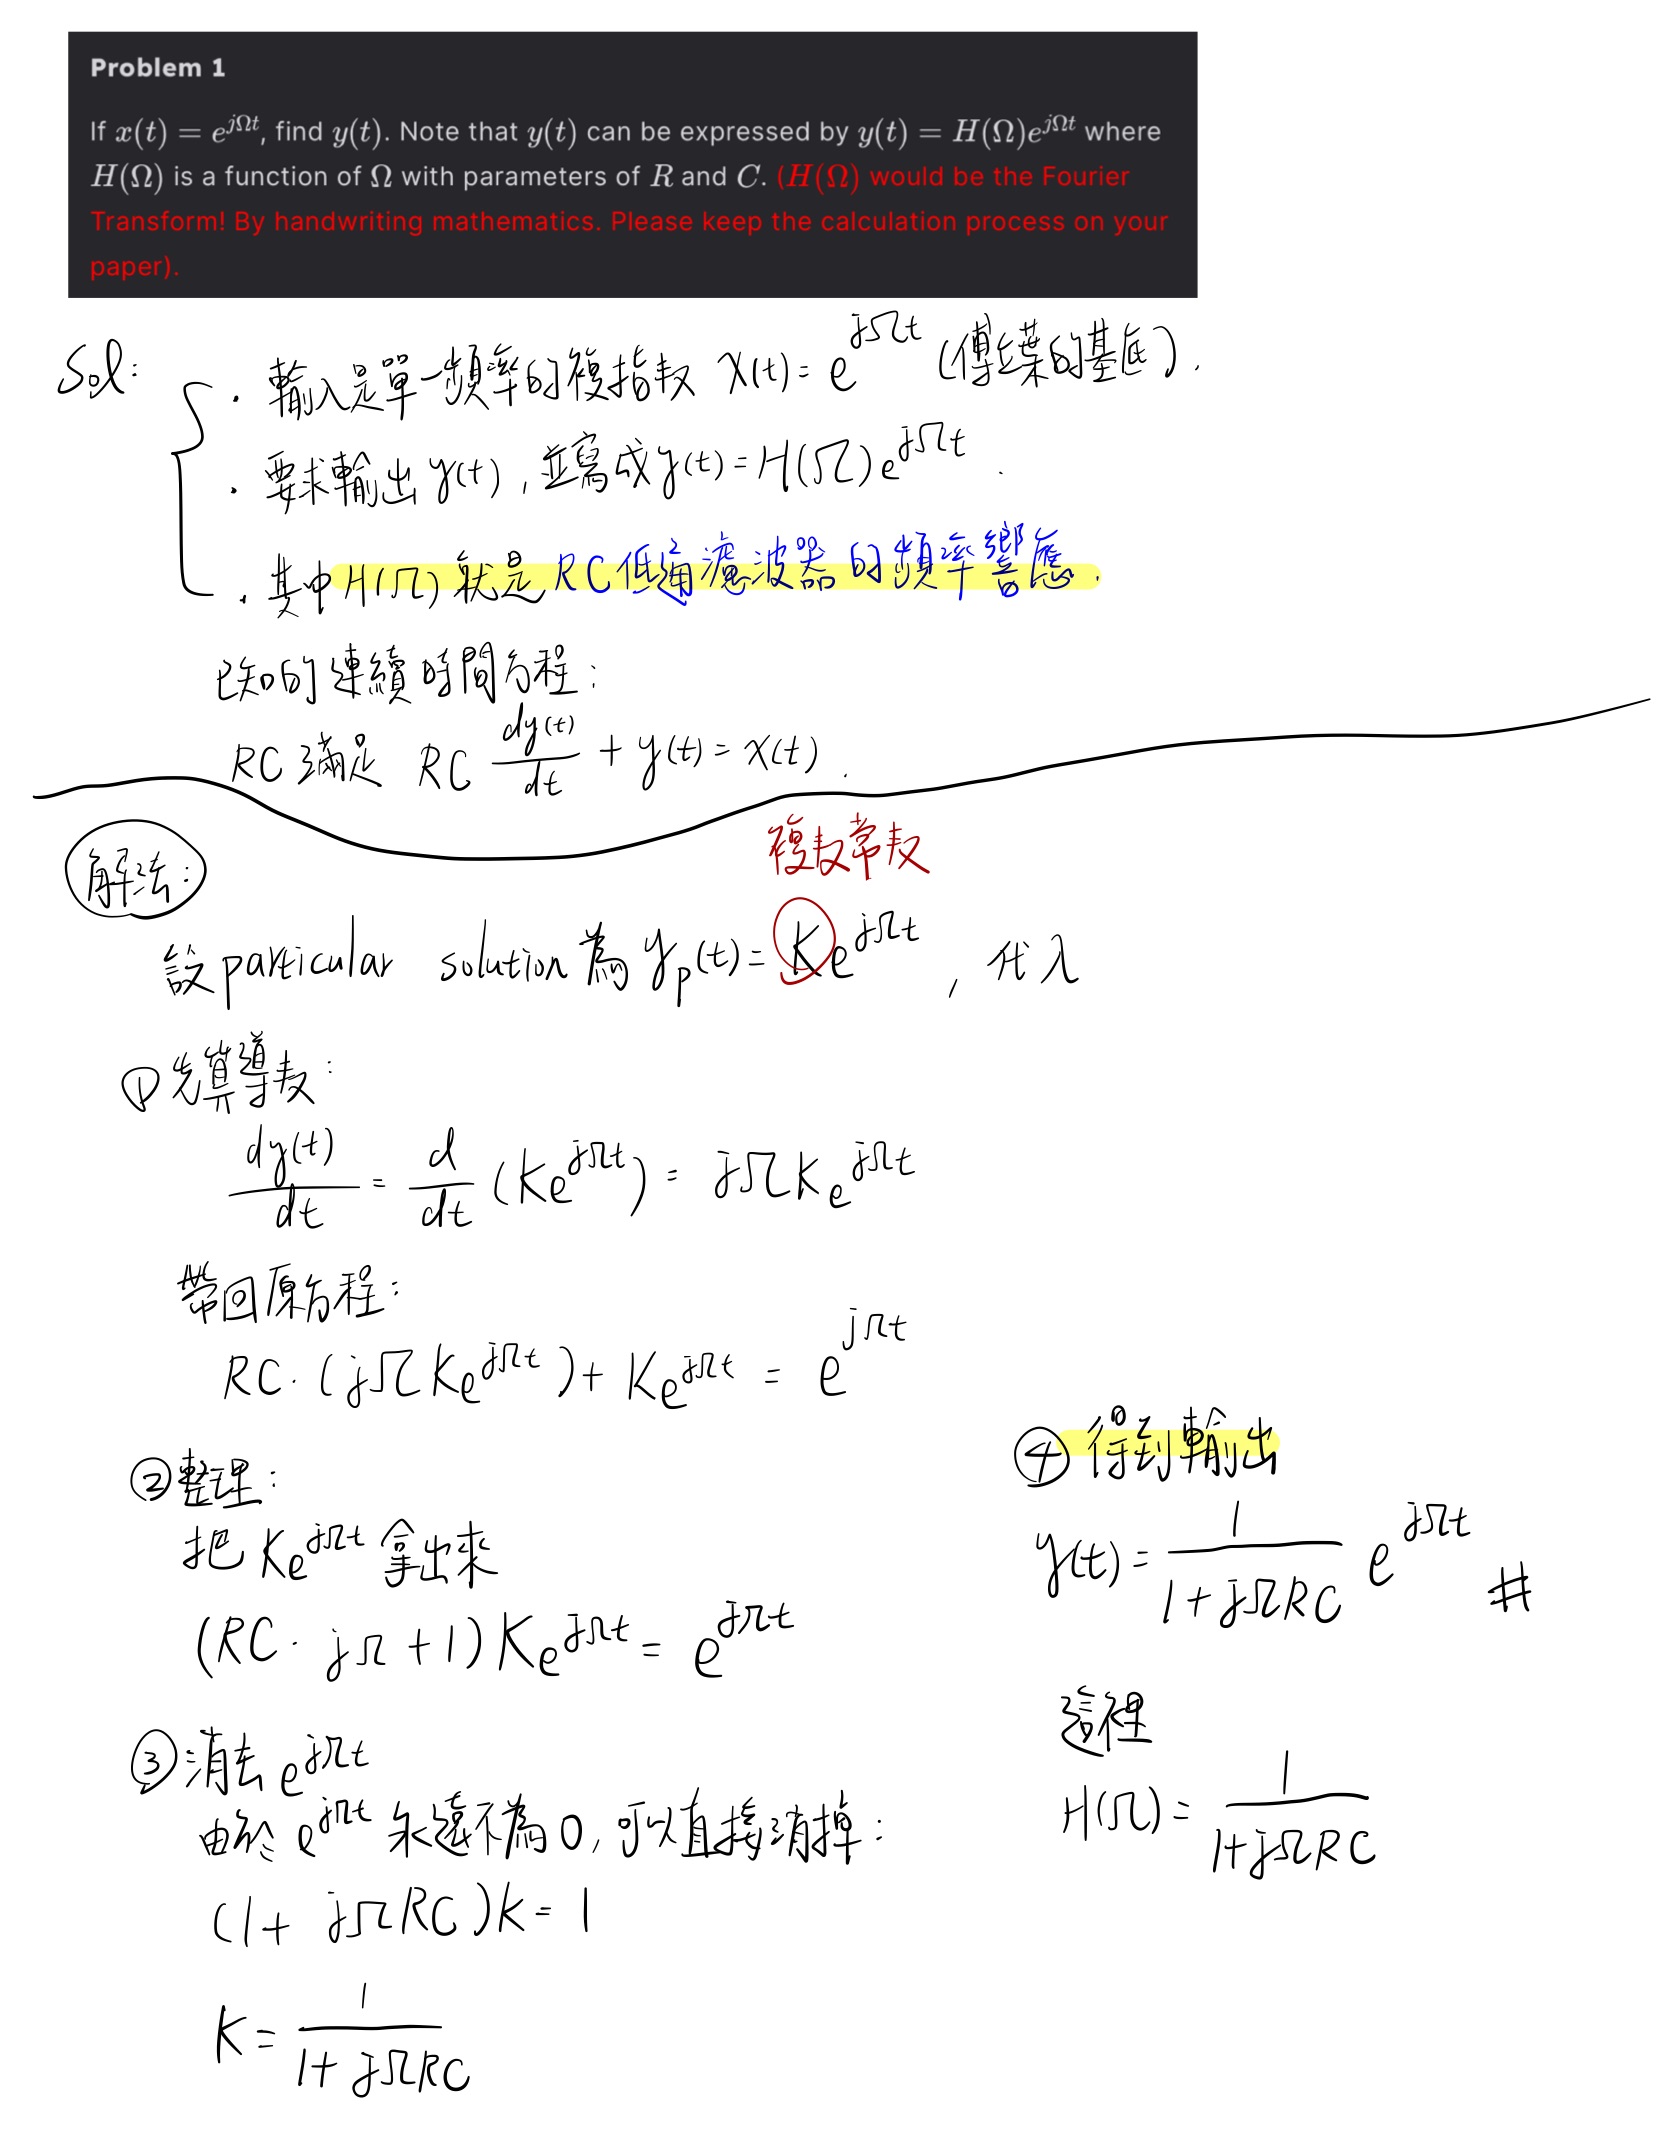 Problem 1
If x(t) = e^{jΩt}, find y(t). Note that y(t) can be expressed by y(t) = H(Ω)e^{jΩt} where
H(Ω) is a function of Ω with parameters of R and C. (H(Ω) would be the Fourier
Transform! By handwriting mathematics. Please keep the calculation process on your
paper).
Sol:
· 輸入是單一頻率的複指数 x(t) = e^{jΩt} (傅立葉的基底).
· 要求輸出 y(t), 並寫成 y(t) = H(Ω)e^{jΩt}.
· 其中 H(Ω) 就是 RC低通濾波器的頻率響應.
已知的連續時間方程:
RC 滿足 RC \frac{dy(t)}{dt} + y(t) = x(t).
解法:
複数常数
設 particular solution 為 y_p(t) = Ke^{jΩt}, 代入
① 先算導数:
\frac{dy(t)}{dt} = \frac{d}{dt}(Ke^{jΩt}) = jΩKe^{jΩt}
帶回原方程:
RC·(jΩKe^{jΩt}) + Ke^{jΩt} = e^{jΩt}
② 整理:
把 Ke^{jΩt} 拿出來
(RC·jΩ+1)Ke^{jΩt} = e^{jΩt}
③ 消去 e^{jΩt}
由於 e^{jΩt} 永遠不為 0, 可以直接消掉:
(1+jΩRC)K = 1
K = \frac{1}{1+jΩRC}
④ 得到輸出
y(t) = \frac{1}{1+jΩRC} e^{jΩt} #
這裡
H(Ω) = \frac{1}{1+jΩRC}